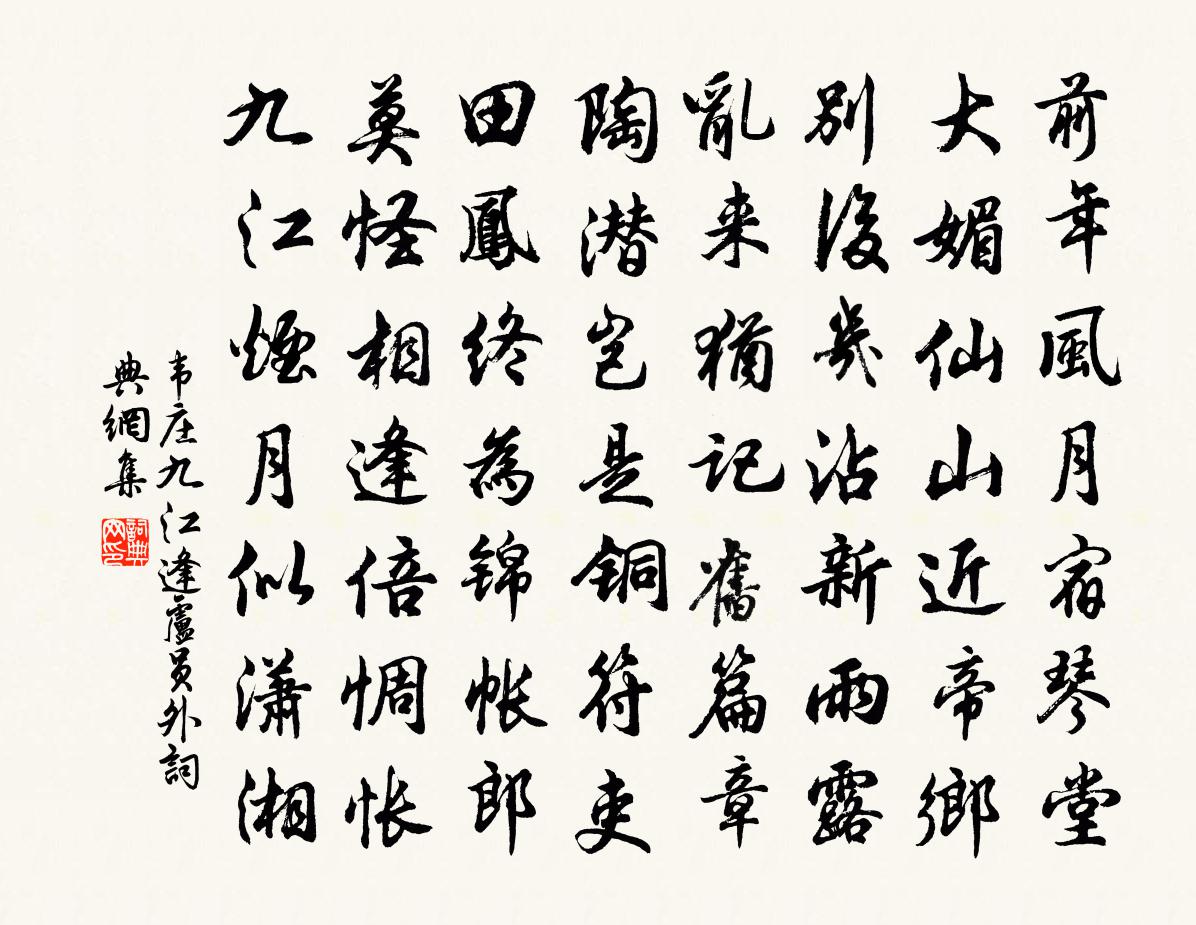 前年風月宿琴堂
大媚仙山近帝鄉
別後幾沾新雨露
亂来猶記舊篇章
陶潜豈是銅符吏
田鳳終為錦帳郎
莫怪相逢倍惆悵
九江煙月似潇湘
韦庄九江逢盧员外詞
典網集
詞典网印